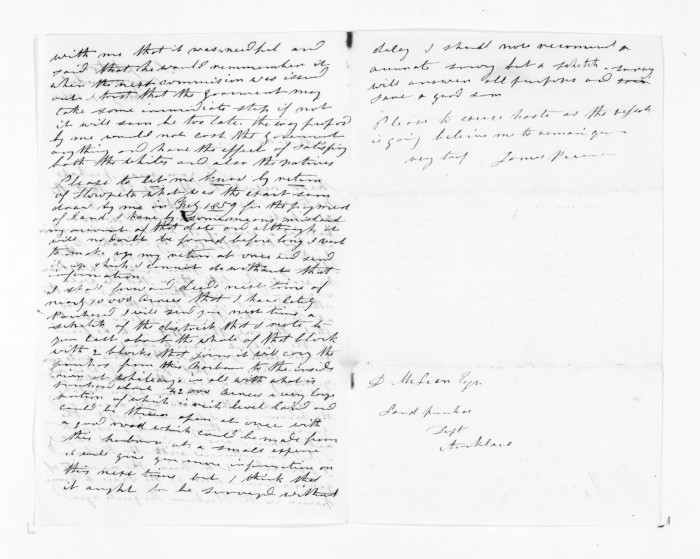 with me that it was needful and
said that he would remmember it
when the next commision was issued
out I trust that the Goverment may
take some immediate step if not
it will soon be too late. the way proposd
by me would not cost the Goverment
anything and have the effect of satisfing
both the whites and also the natives
Please to let me know by return
of Steamer what was the exact sum
drawn by me in July 1859 for the payment
of land I have by some means mislaid
my account of that date and although it
will no doubt be found before long I want
to make up my return at once and send
it up which I cannot do without that
information
I shall forward deeds next time of
nearly 10000 acres that I have lately
Purchased I will send you next time a
sketch of the district that I wrote to
you last about the whole of that block
with 2 blocks that joins it will carry the
purchas from this harbour to the
river at in all with what is
purchased about 42000 acres a very large
portion of which is rich level land and
could be thrown open at once with
a good road which could be made from
this harbour at a small expence
I will give you more information on
this next time but I think that
it ought to be surveyed without
delay I should not recomend a
survey but a sketch survey
will answer all purpose and
save a good sum
Please to excuse haste as the
is going believe me to remain
very truly James
D McLean Esqr
Land purchas
Dept
Auckland